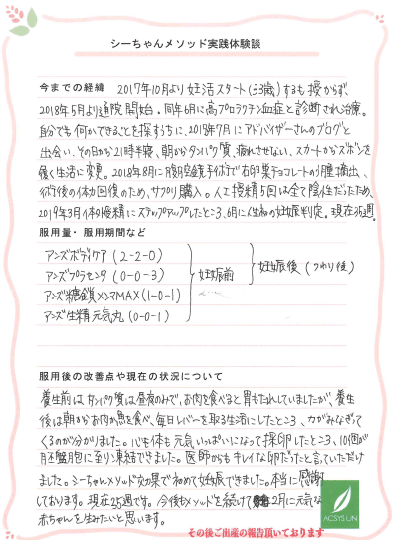 シーちゃんメソッド実践体験談
今までの経緯 2017年10月より妊活スタート(33歳)するも授からず、
2018年5月より通院開始。同年6月に高プロラクチン血症と診断され治療。
自分でも何かできることを探すうちに、2018年7月にアドバイザーさんのブログと
出会い、その日から21時半寝、朝からタンパク質、疲れさせない、スカートからズボンを
履く生活に変更。2018年8月に腹腔鏡手術で右卵巣チョコレートのう腫摘出、
術後の体力回復のため、サプリ購入。人工授精5回は全て陰性だったため、
2019年3月体外授精にステップアップしたところ、6月に人生初の妊娠判定。現在25週。
服用量・服用期間など
アンズボディケア (2-2-0)
アンズプラセンタ (0-0-3)
妊娠前
妊娠後(つわり後)
アンズ糖鎖メンマMAX(1-0-1)
アンズ生精元気丸(0-0-1)
服用後の改善点や現在の状況について
養生前はタンパク質は昼夜のみで、お肉を食べると胃もたれしていましたが、養生
後は朝からお肉か魚を食べ、毎日レバーを取る生活にしたところ、力がみなぎって
くるのが分かりました。心も体も元気いっぱいになって採卵したところ、10個が
胚盤胞に至り凍結できました。医師からもキレイな卵だったと言っていただけ
ました。シーちゃんメソッド効果で初めて妊娠できました。本当に感謝
しております。現在25週です。今後もメソッドを続けて 2月に元気な
赤ちゃんを生みたいと思います。
ACSYSUN
その後ご出産の報告頂いております